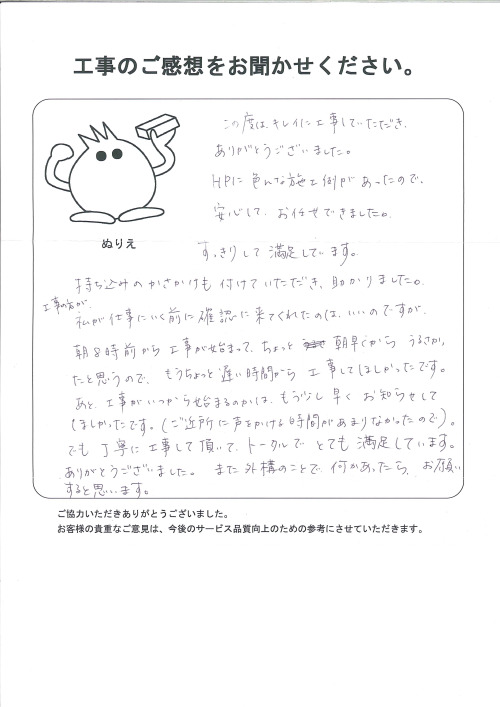 工事のご感想をお聞かせください。
この度は、キレイに工事していただき、
ありがとうございました。
HPに色んな施工例があったので、
安心して、お任せできました。
ぬりえ
すっきりして満足しています。
持ち込みのかさかけも付けていただき、助かりました。
工事の方が、
私が仕事にいく前に確認に来てくれたのは、いいのですが、
朝8時前から工事が始まって、ちょっと 朝早くから うるさか
たと思うので、もうちょっと遅い時間から工事してほしかったです。
あと、工事がいつから始まるのかは、もう少し早くお知らせして
ほしかったです。(ご近所に声をかける時間があまりなかったので)。
でも丁寧に工事して頂いて、トータルでとても満足しています。
ありがとうございました。また外構のことで何かあったら、お願い
すると思います。
ご協力いただきありがとうございました。
お客様の貴重なご意見は、今後のサービス品質向上のための参考にさせていただきます。